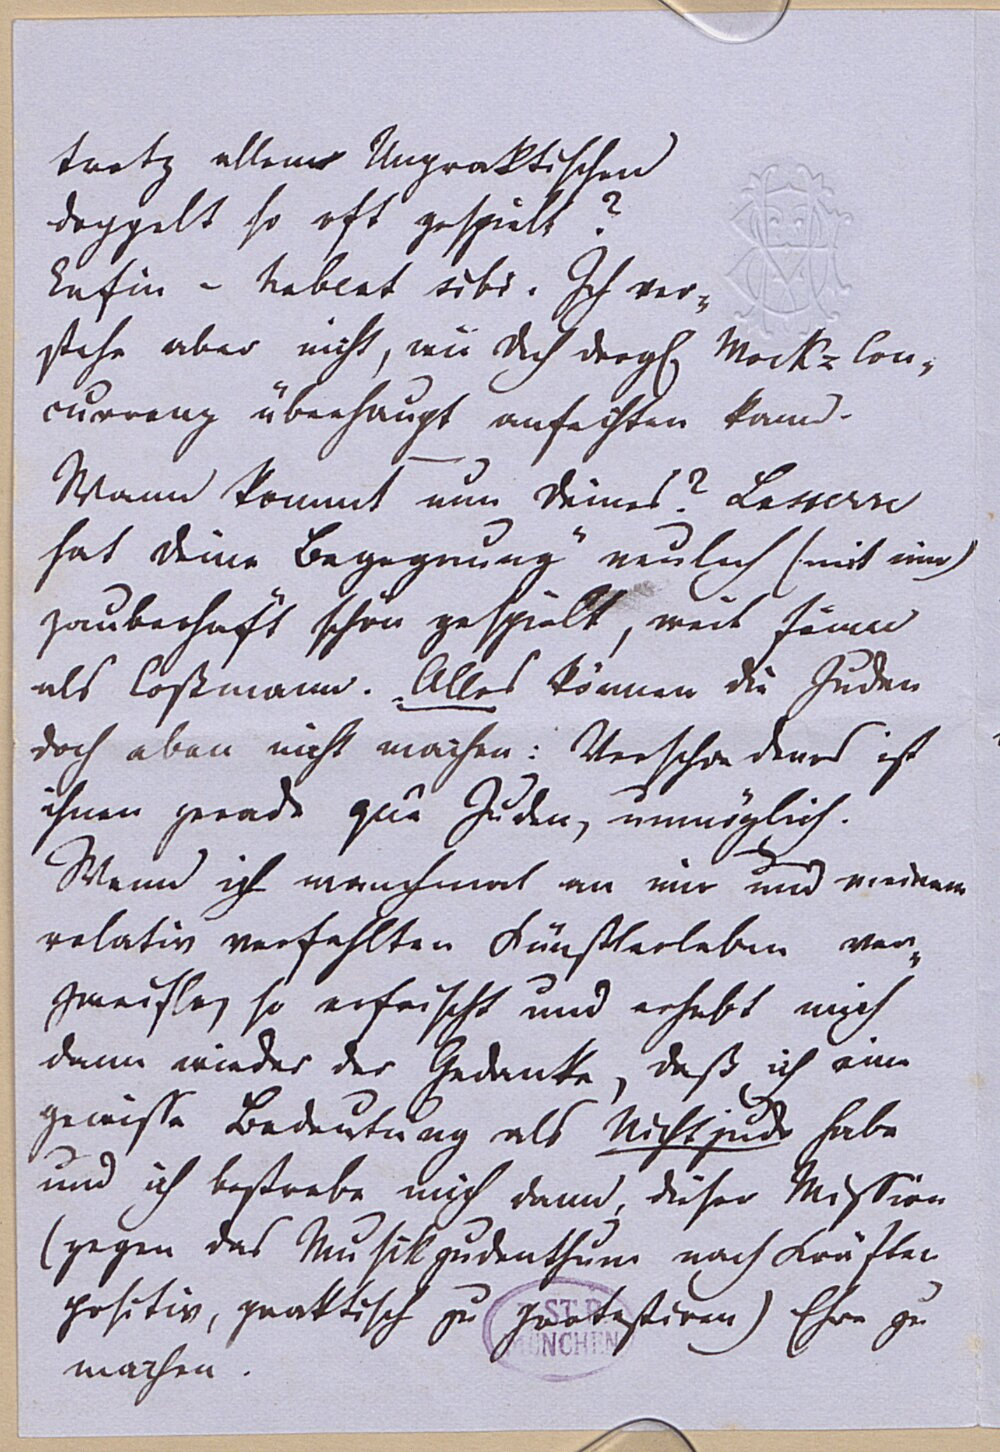 trotz allem Unpraktischen
doppelt so oft gespielt?
Enfin – habeat sibi. Ich ver-
stehe aber nicht, wie Dich dergl. Mock-Con-
currenz überhaupt anfechten kann.
Wann kommt nun Deines?
hat Deine Begegnung" neulich (mit mir)
zauberhaft schön gespielt, weit feiner
als Coßmann. Alles können die Juden
doch eben nicht machen: Verschiedenes ist
ihnen gerade quâ Juden, unmöglich.
Wenn ich manchmal an mir und meinem
relativ verfehlten Künstlerleben ver-
zweifle, so erfrischt und erhebt mich
dann wieder der Gedanke, daß ich eine
gewisse Bedeutung als Nichtjude habe
und ich bestrebe mich dann, dieser Mission
(gegen das Musikjudenthum nach Kräften
positiv, praktisch zu protestiren) Ehre zu
machen.
ST. B.
MÜNCHEN